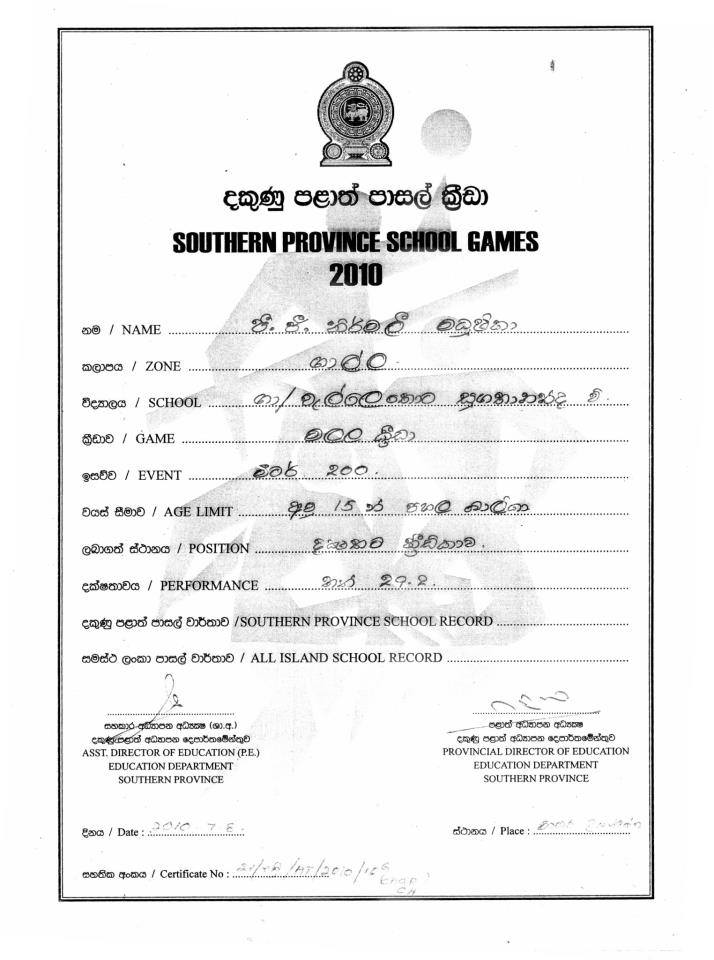 දකුණු පළාත් පාසල් ක්‍රීඩා
SOUTHERN PROVINCE SCHOOL GAMES
2010
නම / NAME පී. ජී. නිර්මලී මධුෂිකා
කලාපය / ZONE ගාල්ල
විද්‍යාලය / SCHOOL ගා/ වැල්ලෙතොට සුගතානන්ද වි.
ක්‍රීඩාව / GAME මලල ක්‍රීඩා
ඉසව්ව / EVENT මීටර් 200.
වයස් සීමාව / AGE LIMIT අවු 15 න් පහල බාලිකා
ලබාගත් ස්ථානය / POSITION දක්ෂතම ක්‍රීඩිකාව.
දක්ෂතාවය / PERFORMANCE තත් 29.2.
දකුණු පළාත් පාසල් වාර්තාව /SOUTHERN PROVINCE SCHOOL RECORD
සමස්ථ ලංකා පාසල් වාර්තාව / ALL ISLAND SCHOOL RECORD
සහකාර අධ්‍යාපන අධ්‍යක්ෂ (ශා.අ.)
දකුණු පළාත් අධ්‍යාපන දෙපාර්තමේන්තුව
ASST. DIRECTOR OF EDUCATION (P.E.)
EDUCATION DEPARTMENT
SOUTHERN PROVINCE
පළාත් අධ්‍යාපන අධ්‍යක්ෂ
දකුණු පළාත් අධ්‍යාපන දෙපාර්තමේන්තුව
PROVINCIAL DIRECTOR OF EDUCATION
EDUCATION DEPARTMENT
SOUTHERN PROVINCE
දිනය / Date : 2010 7 6.
ස්ථානය / Place :
සහතික අංකය / Certificate No : /AT/2010/166